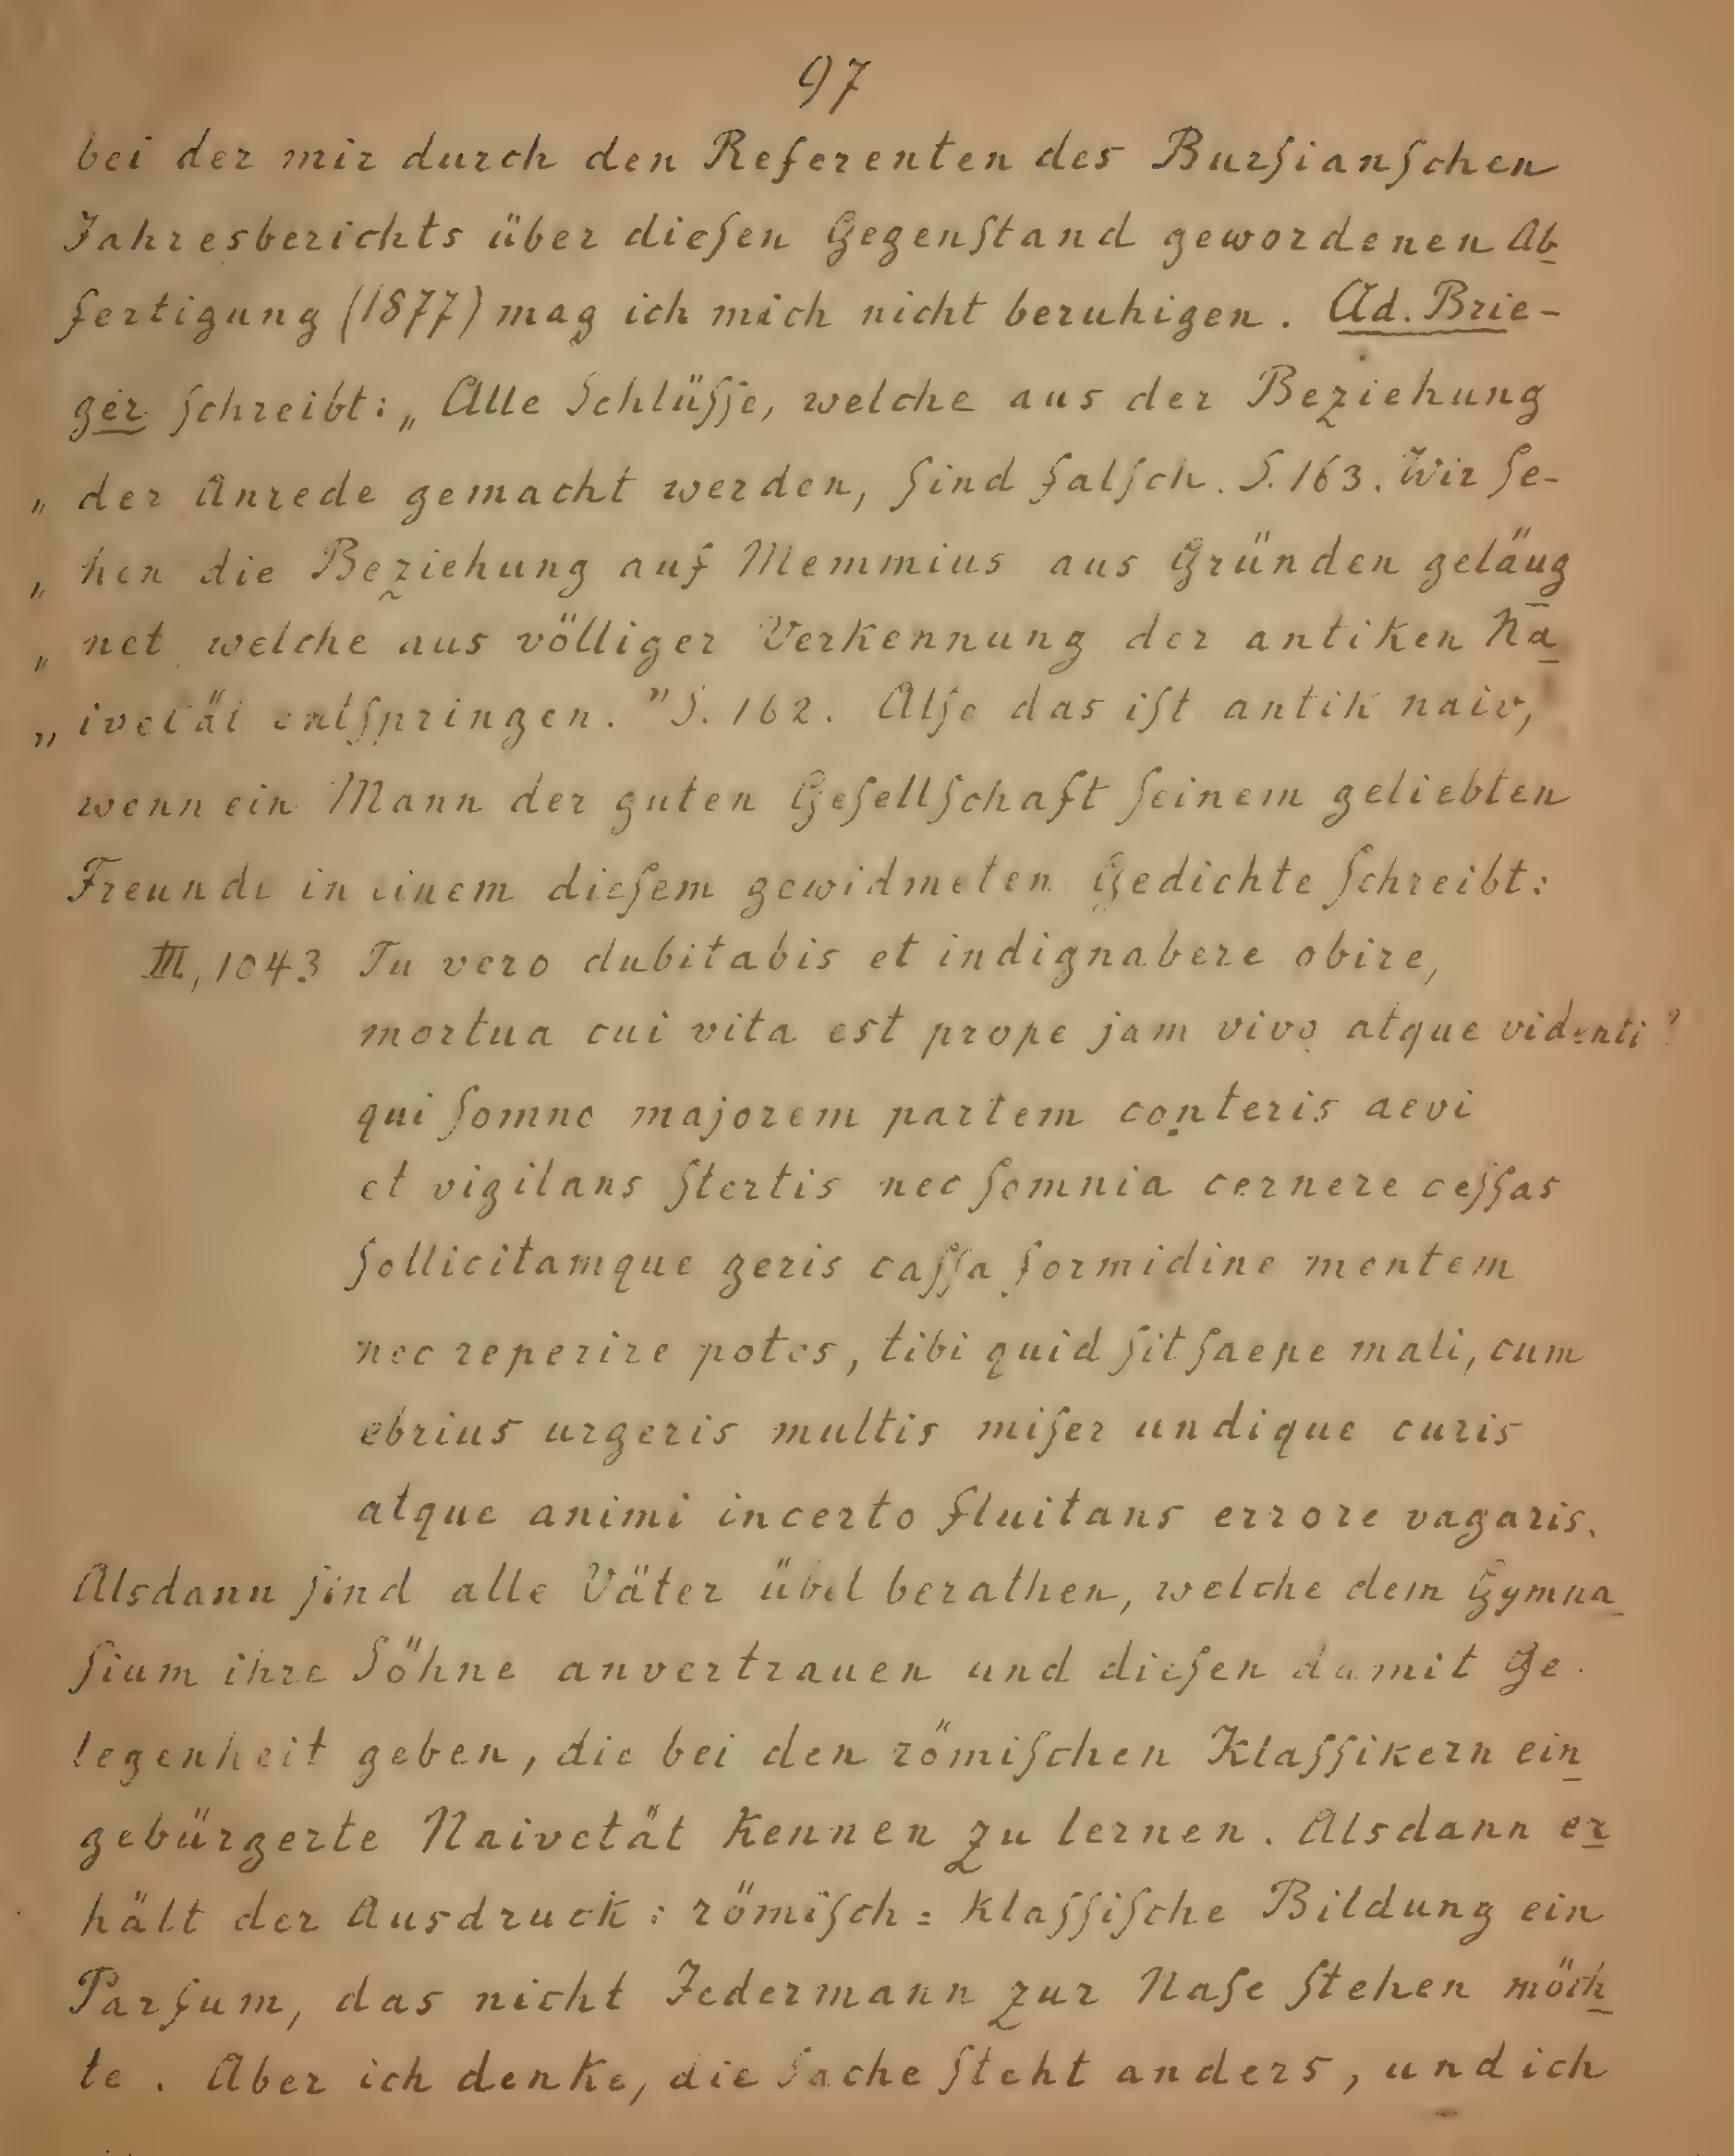 97
bei der mir durch den Referenten des Burſianſchen
Jahresberichts über dieſen Gegenſtand gewordenen Ab-
fertigung (1877) mag ich mich nicht beruhigen. Ad. Brie-
ger ſchreibt: „Alle Schlüſſe, welche aus der Beziehung
„ der Anrede gemacht werden, ſind falſch. S. 163. Wir ſe-
„ hen die Beziehung auf Memmius aus Gründen geläug-
„ net, welche aus völliger Verkennung der antiken Na-
„ ivetät entſpringen." S. 162. Alſo das iſt antik naiv,
wenn ein Mann der guten Geſellſchaft ſeinem geliebten
Freunde in einem dieſem gewidmeten Gedichte ſchreibt:
III, 1043 Tu vero dubitabis et indignabere obire,
mortua cui vita est prope jam vivo atque videnti?
qui ſomno majorem partem conteris aevi
et vigilans ſtertis nec ſomnia cernere ceſſas
ſollicitamque geris caſſa formidine mentem
nec reperire potes, tibi quid ſit ſaepe mali, cum
ebrius urgeris multis miſer undique curis
atque animi incerto fluitans errore vagaris.
Alsdann ſind alle Väter übel berathen, welche dem Gymna-
ſium ihre Söhne anvertrauen und dieſen damit Ge-
legenheit geben, die bei den römiſchen Klaſſikern ein-
gebürgerte Naivetät kennen zu lernen. Alsdann er-
hält der Ausdruck: römiſch=klaſſiſche Bildung ein
Parfum, das nicht Jedermann zur Naſe ſtehen möch-
te. Aber ich denke, die Sache ſteht anders, und ich